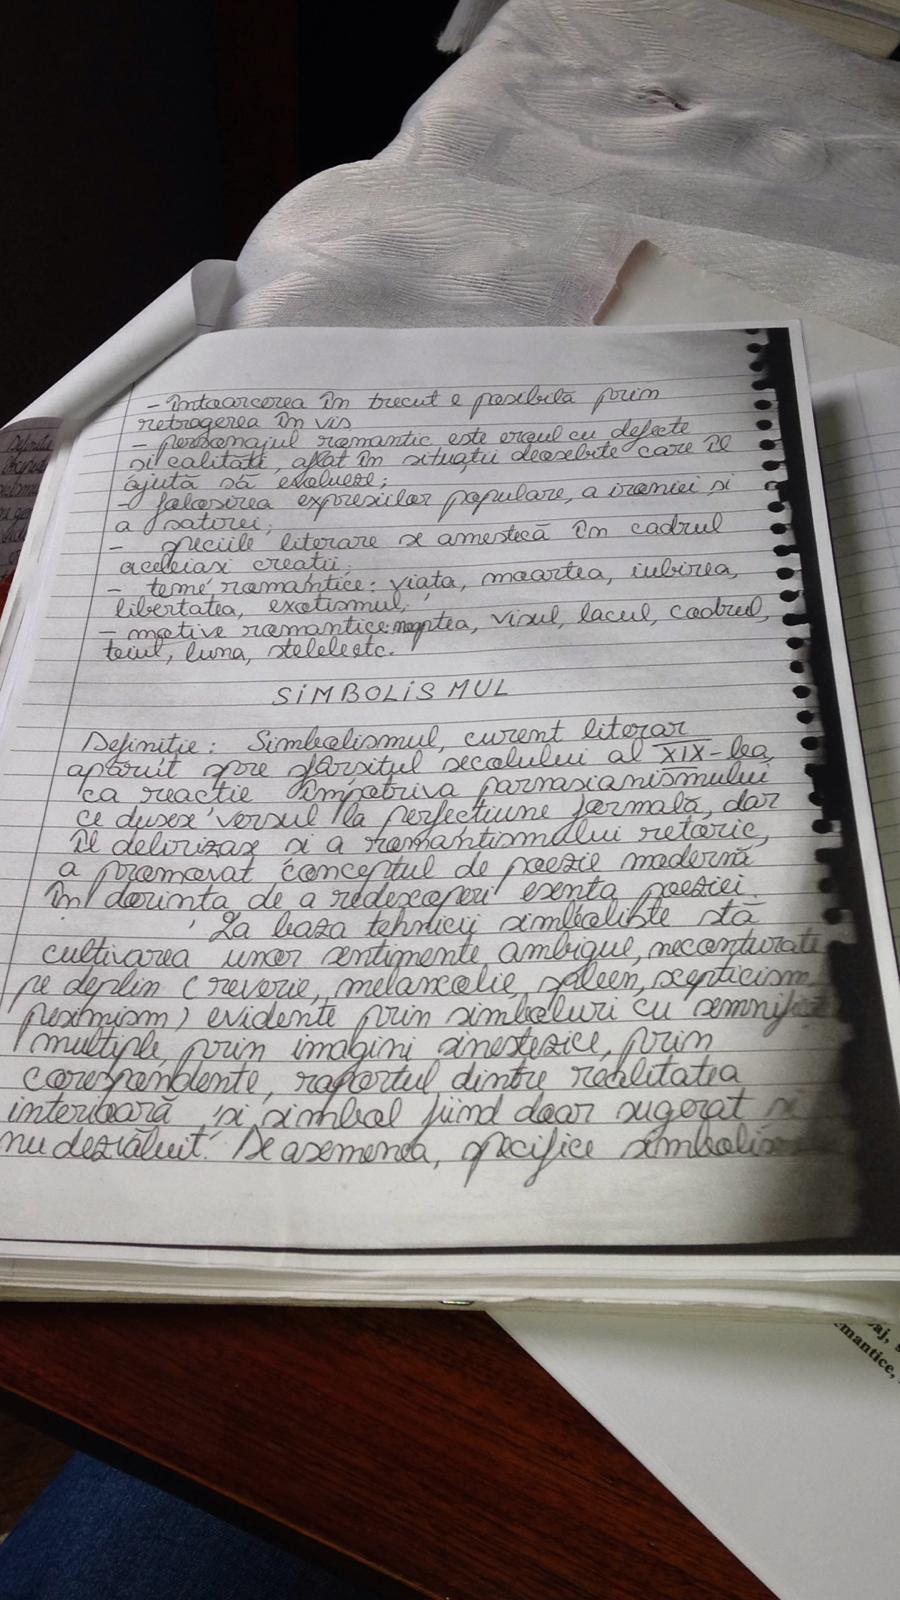 - întoarcerea în trecut e posibilă prin
retragerea în vis
- personajul romantic este eroul cu defecte
si calitati, aflat în situații deosebite care îl
ajută să evolueze;
- folosirea expresiilor populare, a ironiei si
a satirei;
- speciile literare se amestecă în cadrul
aceleiasi creatii;
- teme romantice: viața, moartea, iubirea,
libertatea, exotismul;
- motive romantice: noaptea, visul, lacul, codrul,
teiul, luna, stelele etc.
SIMBOLISMUL
Definitie: Simbolismul, curent literar
apărut spre sfârsitul secolului al XIX-lea
ca reactie împotriva parnasianismului
ce dusese versul la perfectiune formală, dar
îl
si a romantismului retoric,
a promovat conceptul de poezie modernă
în dorinta de a redescoperi esenta poeziei
La baza tehnicii simboliste stă
cultivarea unor sentimente ambigue, neconturate
pe deplin (reverie, melancolie, spleen, scepticism
pesimism) evidente prin simboluri cu
multiple, prin imagini sinestezice, prin
corespondente, raportul dintre realitatea
interioară si simbol fiind doar sugerat si
nu dezvăluit. De asemenea, specifice